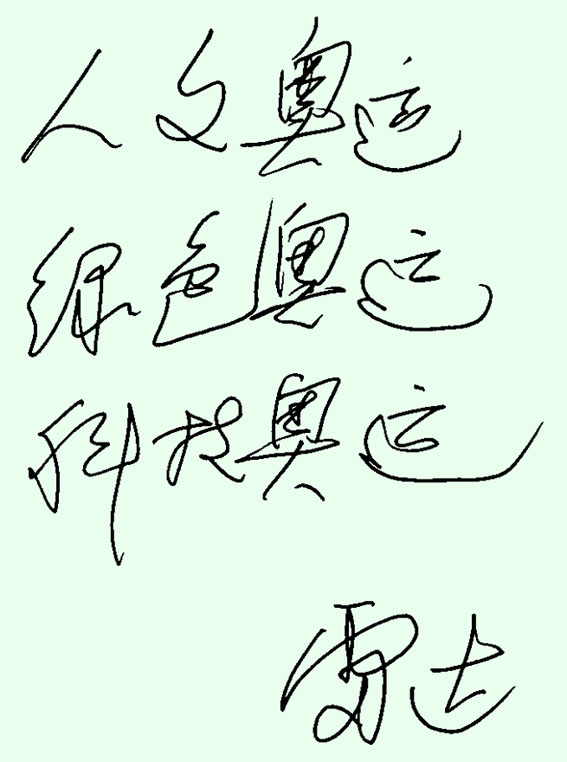 人文奥运
绿色奥运
科技奥运
雷达